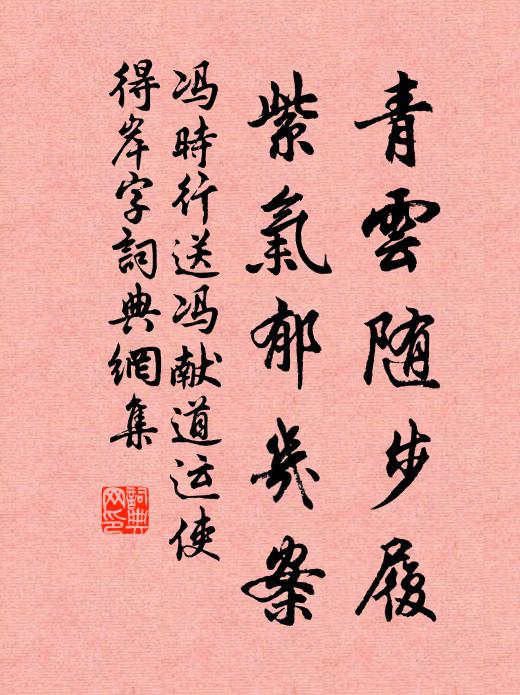 青雲随步履
紫氣郁幾案
冯時行送冯献道运使
得岸字詞典網集
詞典网印